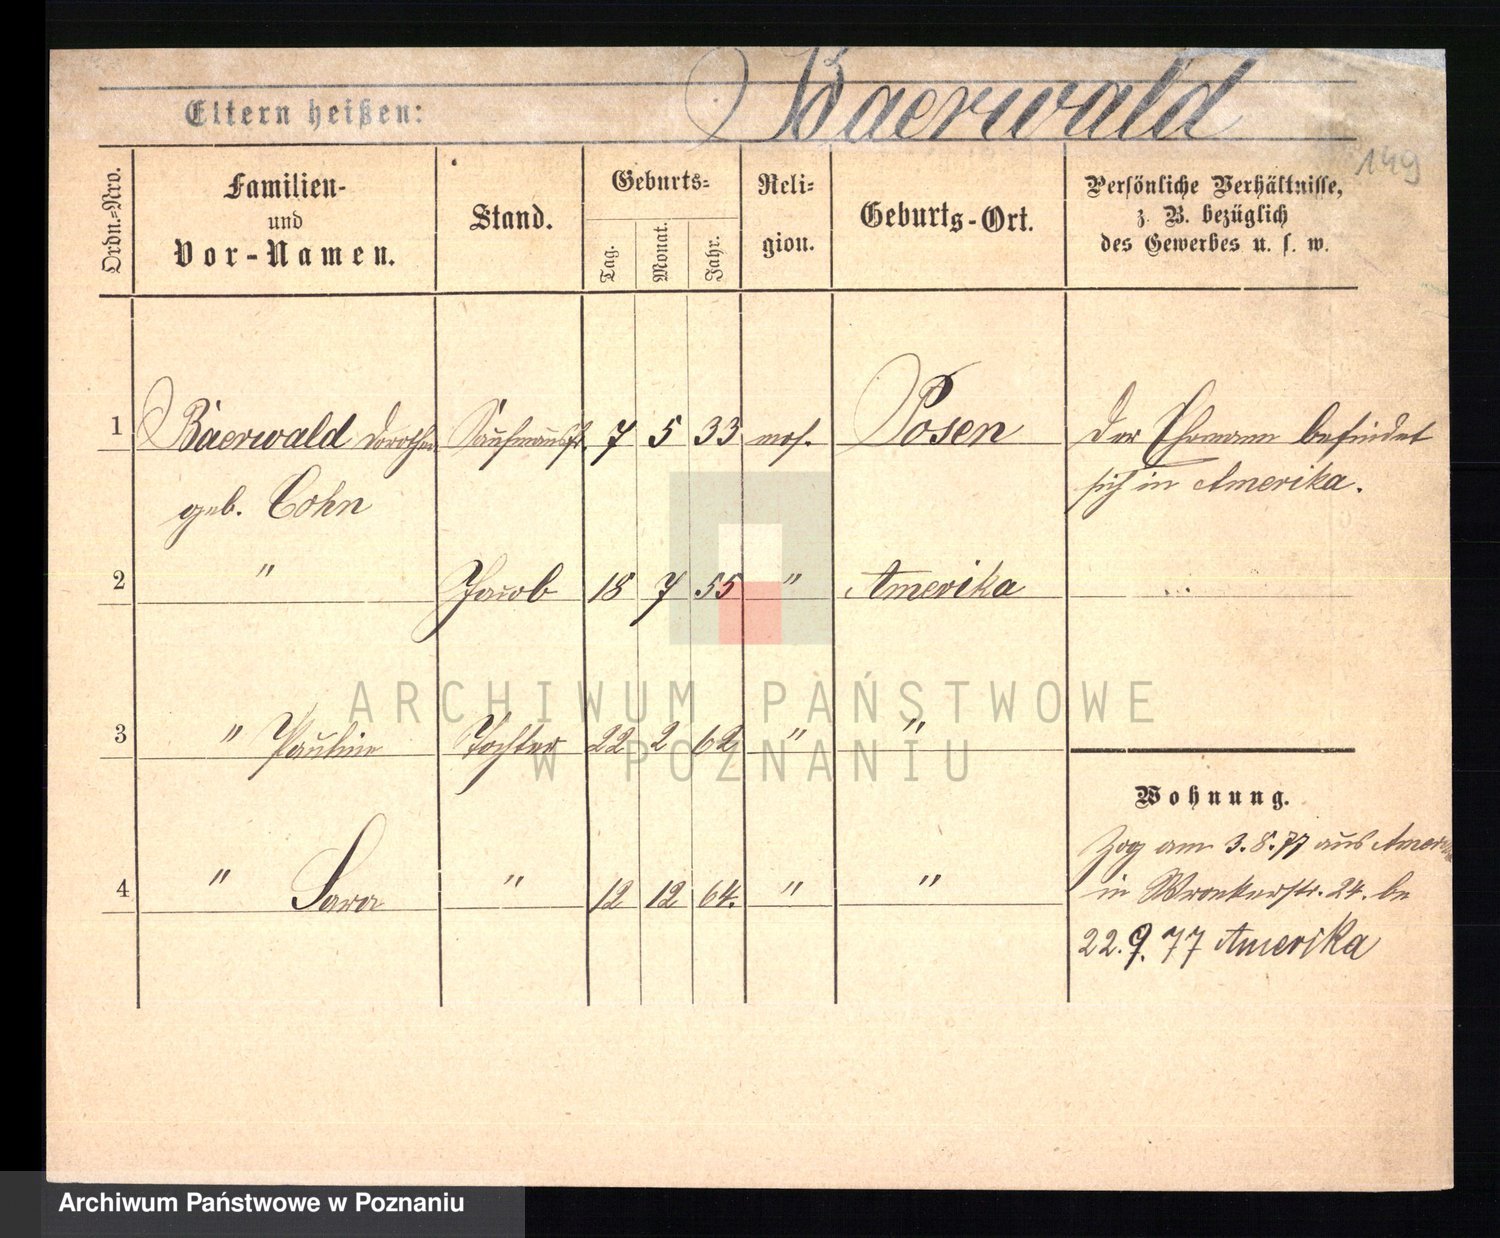 Baerwald
Eltern heißen:
149
Ordn.=Nro.
Familien-
und
Vor-Namen.
Stand.
Geburts=
Tag.
Monat.
Jahr.
Reli=
gion.
Geburts-Ort.
Persönliche Verhältnisse,
z. B. bezüglich
des Gewerbes u. s. w.
1 Baerwald Dorothea Kaufmannsfr. 7 5 33 mos. Posen Der Ehemann befindet
geb. Cohn sich in Amerika.
2 " Jacob 18 7 55 " Amerika
3 " Pauline Tochter 22 2 62 " "
4 " Sara " 12 12 64. " "
Wohnung.
Zog am 3.8.77 aus Amerika
in Wronkerstr. 24. be
22.9.77 Amerika
ARCHIWUM PAŃSTWOWE
W POZNANIU
Archiwum Państwowe w Poznaniu